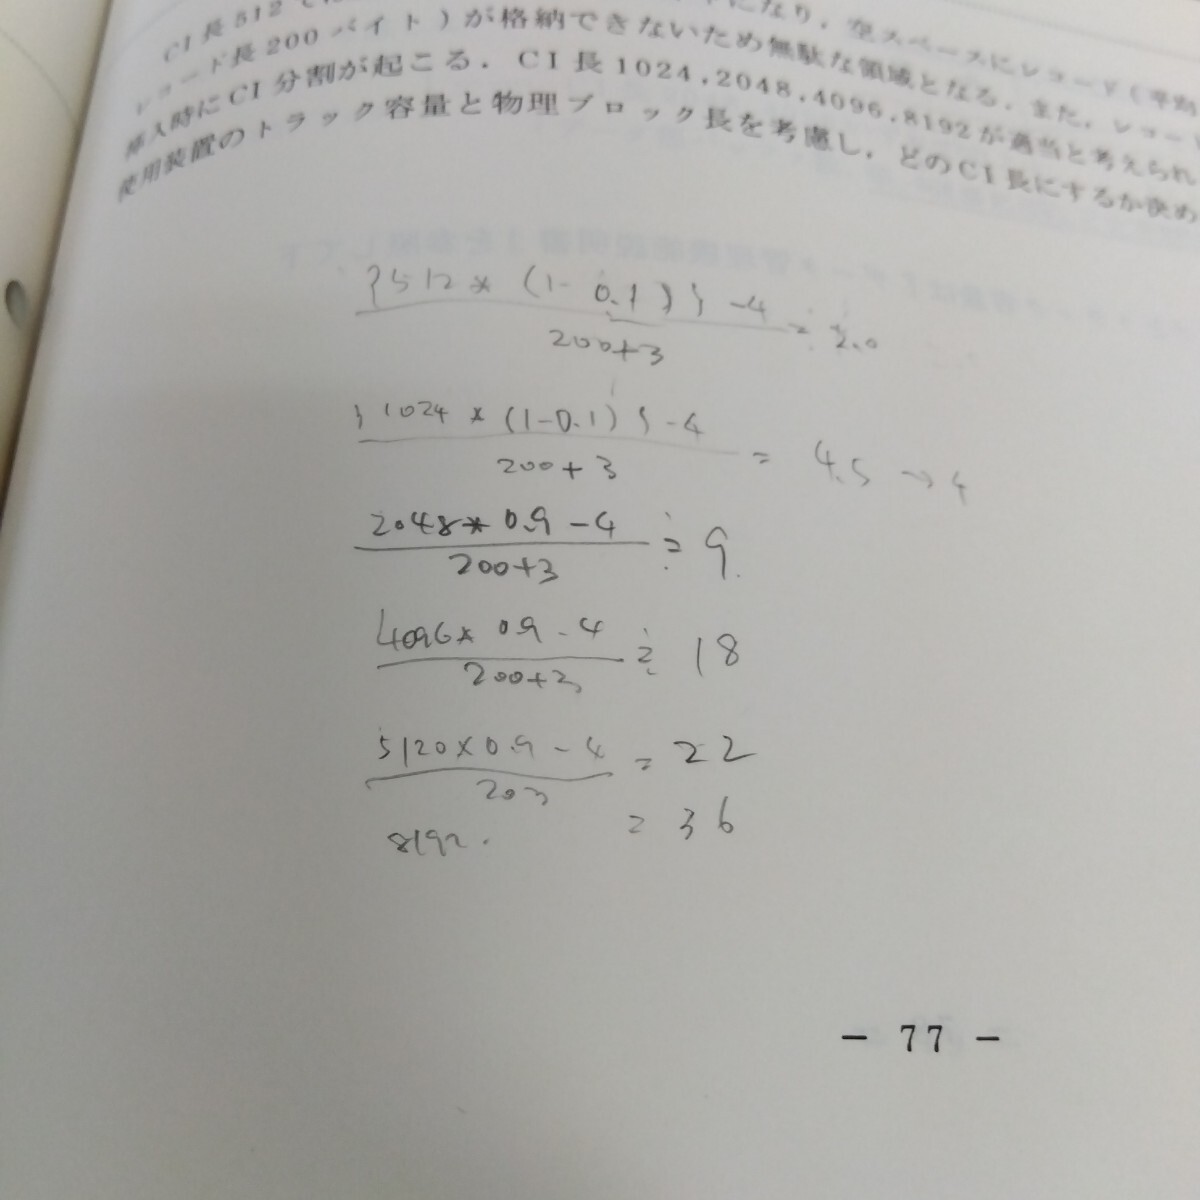 になり，空スペースにレコード（平均
CI長512
レコード長200バイト）が格納できないため無駄な領域となる．また，レコード
挿入時にCI分割が起こる．CI長1024，2048，4096，8192が適当と考えられ
使用装置のトラック容量と物理ブロック長を考慮し，どのCI長にするか決め
{512*(1-0.1)}-4
200+3
≒ 2.0
{1024*(1-0.1)}-4
200+3
= 4.5 → 4
2048*0.9-4
200+3
≒ 9
4096*0.9-4
200+3
≒ 18
5120×0.9-4
203
= 22
8192. = 36
- 77 -